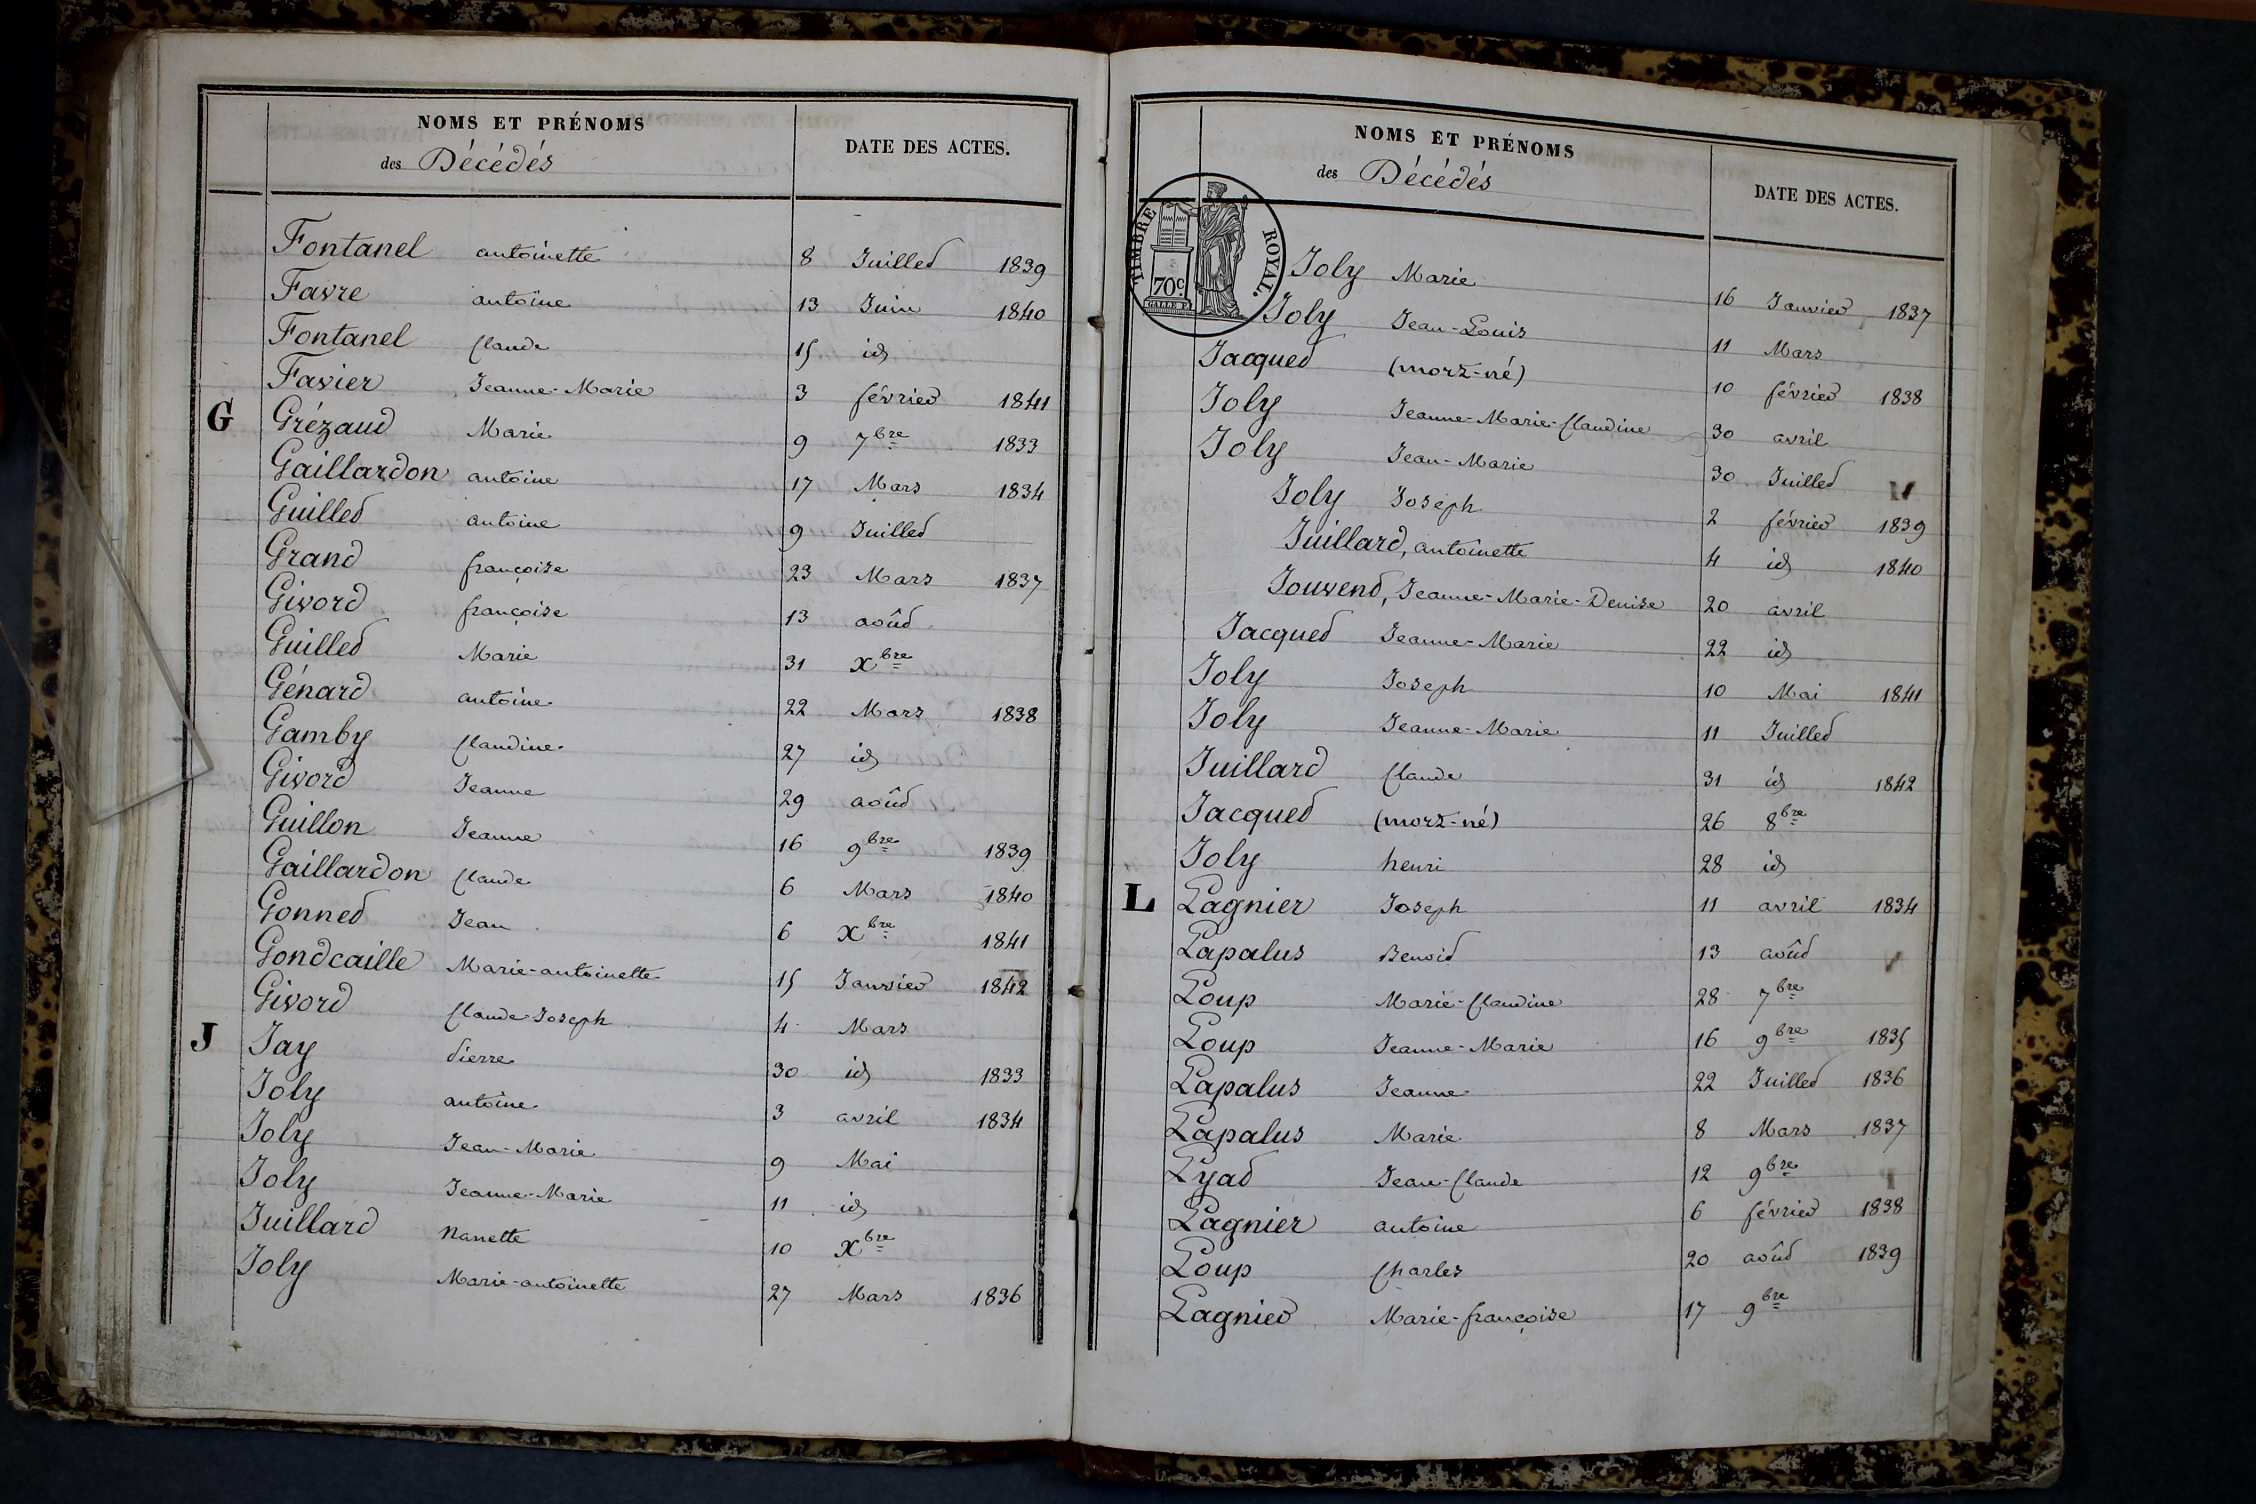 NOMS ET PRÉNOMS
des Décédés
DATE DES ACTES.
Fontanel antoinette 8 Juillet 1839
Favre antoine 13 Juin 1840
Fontanel Claude 15 id
Favier Jeanne-Marie 3 février 1841
G Grézaud Marie 9 7bre 1833
Gaillardon antoine 17 Mars 1834
Guillet antoine 9 Juillet
Grand françoise 23 Mars 1837
Givord françoise 13 août
Guillet Marie 31 Xbre
Génard antoine 22 Mars 1838
Gamby Claudine 27 id
Givord Jeanne 29 août
Guillon Jeanne 16 9bre 1839
Gaillardon Claude 6 Mars 1840
Gonnet Jean 6 Xbre 1841
Gondcaille Marie-antoinette 15 Janvier 1842
Givord Claude Joseph 4 Mars
J Jay Pierre 30 id 1833
Joly antoine 3 avril 1834
Joly Jean-Marie 9 Mai
Joly Jeanne-Marie 11 id
Juillard Nanette 10 Xbre
Joly Marie-antoinette 27 Mars 1836
NOMS ET PRÉNOMS
des Décédés
DATE DES ACTES.
TIMBRE ROYAL.
70c.
GALLE F.
Joly Marie 16 Janvier 1837
Joly Jean-Louis 11 Mars
Jacquet (mort-né) 10 février 1838
Joly Jeanne-Marie-Claudine 30 avril
Joly Jean-Marie 30 Juillet
Joly Joseph 2 février 1839
Juillard, antoinette 4 id 1840
Jouvent, Jeanne-Marie-Denise 20 avril
Jacquet Jeanne-Marie 22 id
Joly Joseph 10 Mai 1841
Joly Jeanne-Marie 11 Juillet
Juillard Claude 31 id 1842
Jacquet (mort-né) 26 8bre
Joly henri 28 id
L Lagnier Joseph 11 avril 1834
Lapalus Benoit 13 août
Loup Marie-Claudine 28 7bre
Loup Jeanne-Marie 16 9bre 1835
Lapalus Jeanne 22 Juillet 1836
Lapalus Marie 8 Mars 1837
Lyat Jean-Claude 12 9bre
Lagnier antoine 6 février 1838
Loup Charles 20 août 1839
Lagnier Marie-françoise 17 9bre